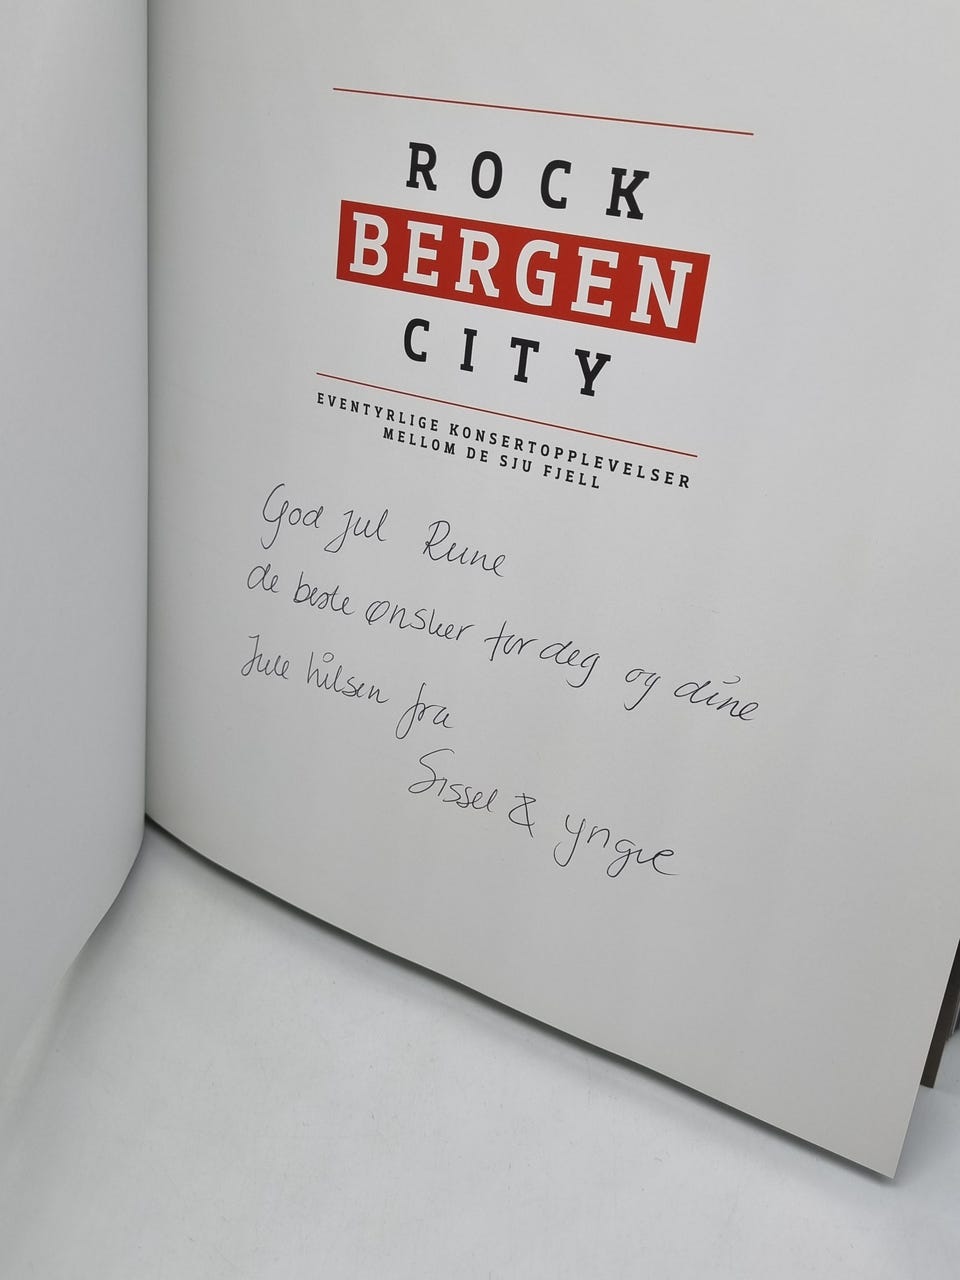 ROCK
BERGEN
CITY
EVENTYRLIGE KONSERTOPPLEVELSER
MELLOM DE SJU FJELL
God jul Rune
de beste ønsker for deg og dine
Jule hilsen fra
Sissel & yngve